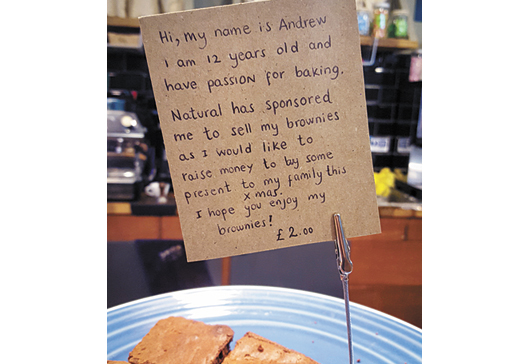 Hi, my name is Andrew
I am 12 years old and
have passion for baking.
Natural has sponsored
me to sell my brownies
as I would like to
raise money to by some
present to my family this
xmas.
I hope you enjoy my
brownies!
£2.00